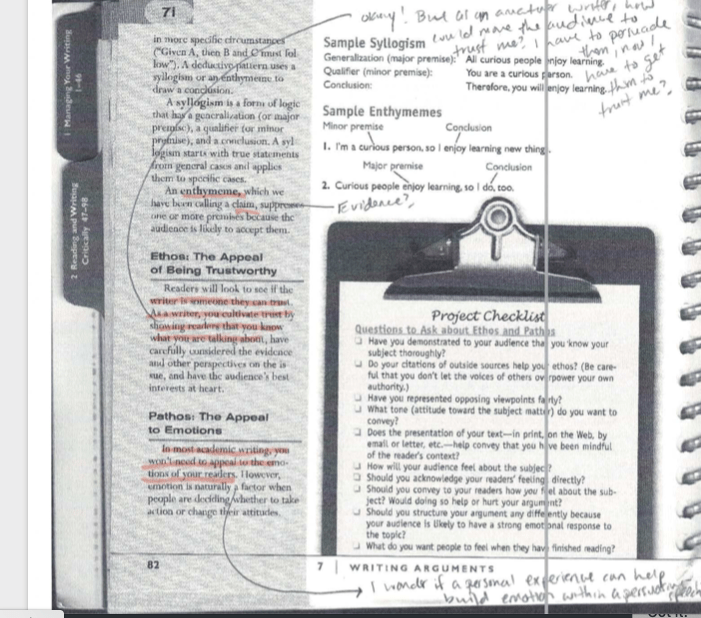 7i
okay! But as an amateur writer, how
could move the audience to
trust me? I have to persuade
them, now I
have to get
them to
trust me?
1 Managing Your Writing
1–46
2 Reading and Writing
Critically 47–98
in more specific circumstances
("Given A, then B and C must fol
low"). A deductive pattern uses a
syllogism or an enthymeme to
draw a conclusion.
A syllogism is a form of logic
that has a generalization (or major
premise), a qualifier (or minor
premise), and a conclusion. A syl
logism starts with true statements
from general cases and applies
them to specific cases.
An enthymeme, which we
have been calling a claim, suppresses
one or more premises because the
audience is likely to accept them.
Ethos: The Appeal
of Being Trustworthy
Readers will look to see if the
writer is someone they can trust.
As a writer, you cultivate trust by
showing readers that you know
what you are talking about, have
carefully considered the evidence
and other perspectives on the is
sue, and have the audience's best
interests at heart.
Pathos: The Appeal
to Emotions
In most academic writing, you
won't need to appeal to the emo-
tions of your readers. However,
emotion is naturally a factor when
people are deciding whether to take
action or change their attitudes
82
Sample Syllogism
Generalization (major premise): All curious people enjoy learning.
Qualifier (minor premise): You are a curious person.
Conclusion: Therefore, you will enjoy learning.
Sample Enthymemes
Minor premise Conclusion
1. I'm a curious person, so I enjoy learning new thing
Major premise Conclusion
2. Curious people enjoy learning, so I do, too.
Evidence?
Project Checklist
Questions to Ask about Ethos and Pathos
Have you demonstrated to your audience tha you know your
subject thoroughly?
Do your citations of outside sources help you ethos? (Be care-
ful that you don't let the voices of others ov rpower your own
authority.)
Have you represented opposing viewpoints fa rly?
What tone (attitude toward the subject matt r) do you want to
convey?
Does the presentation of your text—in print, on the Web, by
email or letter, etc.—help convey that you h ve been mindful
of the reader's context?
How will your audience feel about the subjec ?
Should you acknowledge your readers' feeling directly?
Should you convey to your readers how you f el about the sub-
ject? Would doing so help or hurt your argum nt?
Should you structure your argument any diffe ently because
your audience is likely to have a strong emot onal response to
the topic?
What do you want people to feel when they hav finished reading?
7 | WRITING ARGUMENTS
I wonder if a personal experience can help
build emotion within a persuasive speech